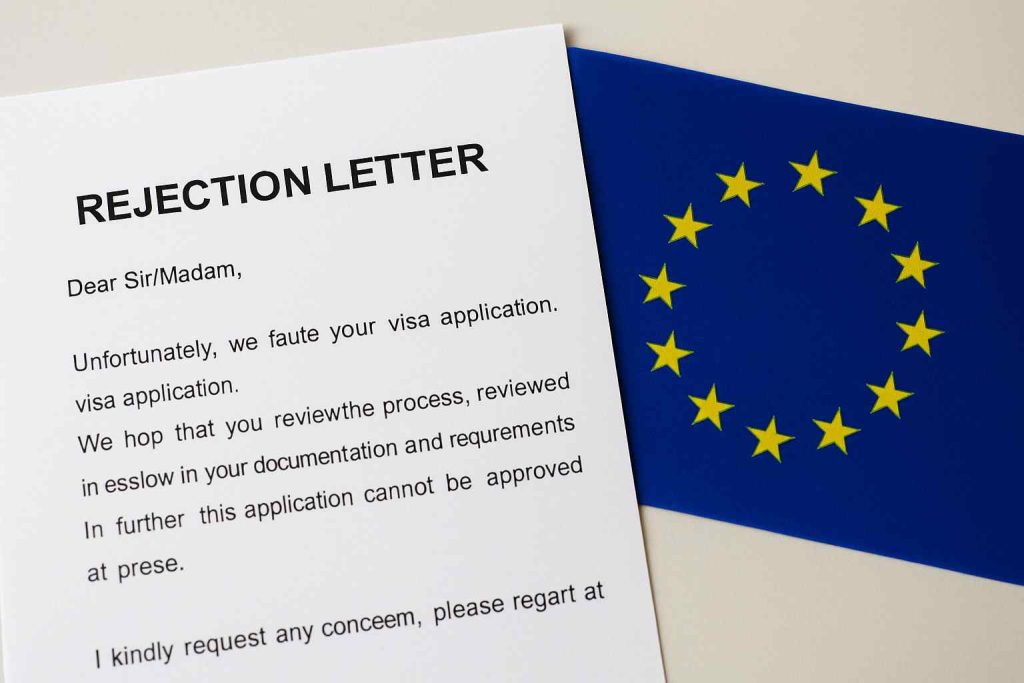 REJECTION LETTER
Dear Sir/Madam,
Unfortunately, we faute your visa application.
visa application.
We hop that you reviewthe process, reviewed
in esslow in your documentation and requrements
In further this application cannot be approved
at prese.
I kindly request any conceem, please regart at